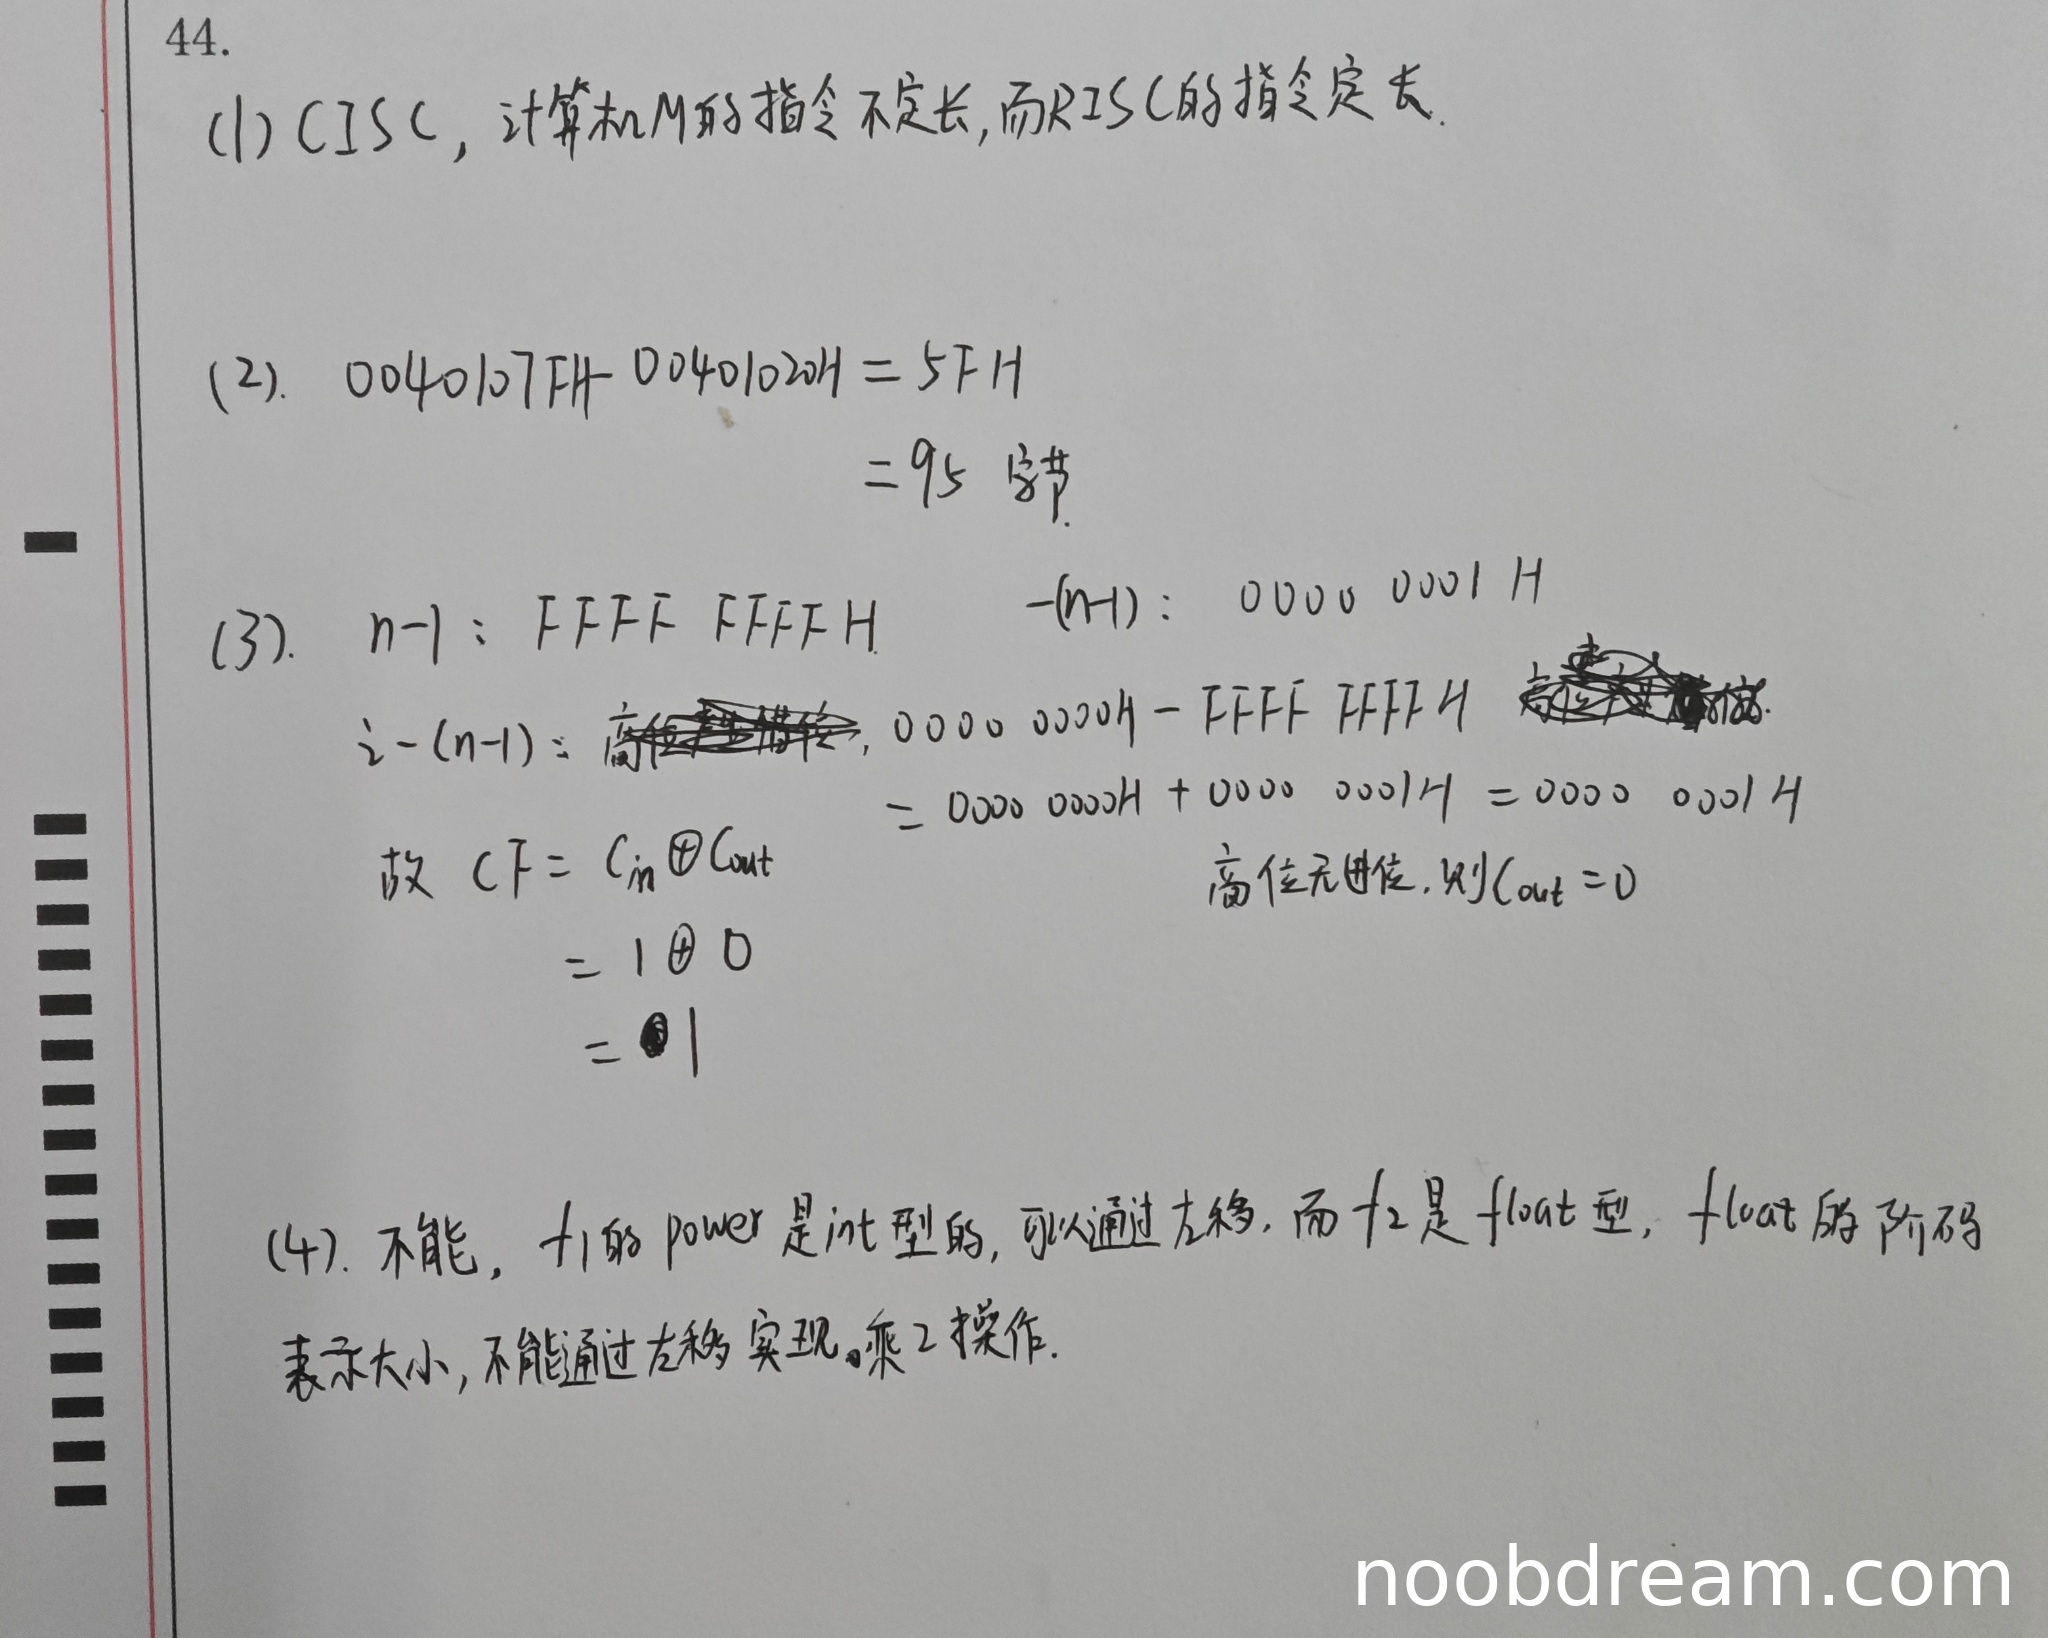 44.
(1) CISC, 计算机M的指令不定长,而RISC的指令定长.
(2). 0040107FH - 00401020H = 5FH
= 95 字节.
(3). n-1: FFFF FFFFH. -(n-1): 0000 0001 H
i-(n-1): 0000 0000H - FFFF FFFFH
= 0000 0000H + 0000 0001H = 0000 0001H
故 CF = Cin⊕Cout 高位无进位.则Cout=0
= 1⊕0
= 1
(4). 不能, f1的power是int型的,可以通过左移.而f2是float型, float的阶码
表示大小,不能通过左移实现乘2操作.
noobdream.com